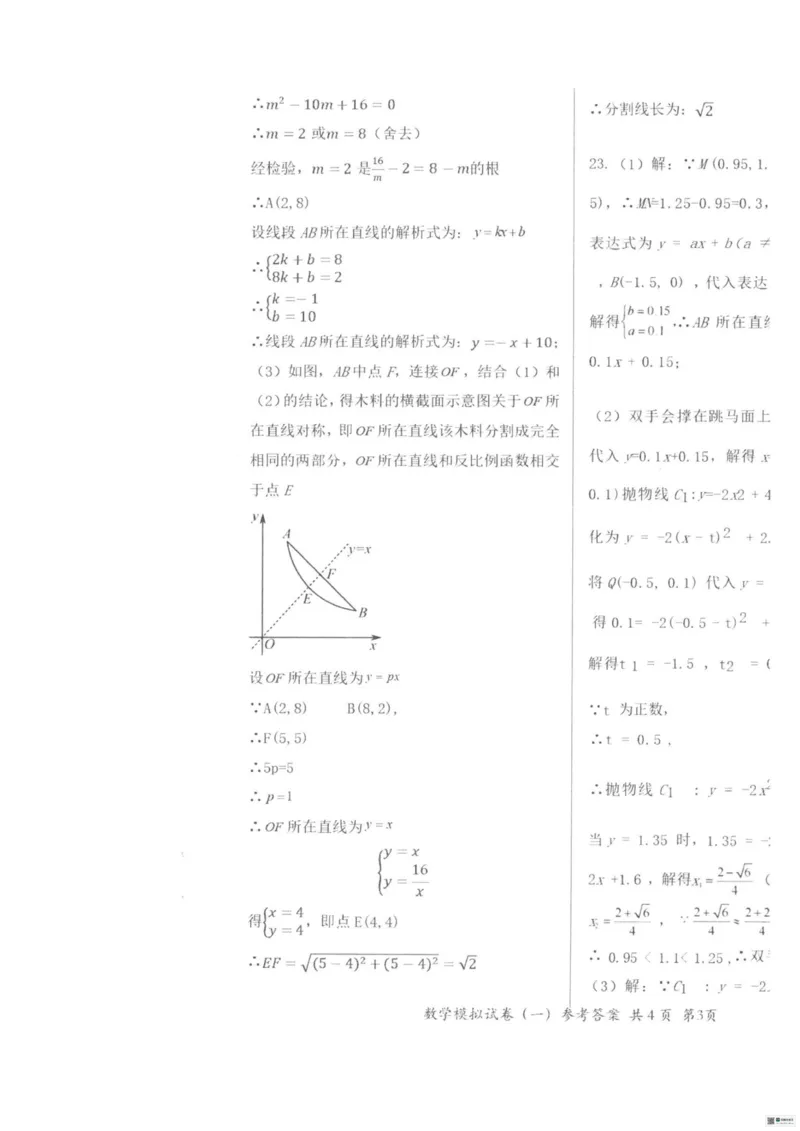 ∴m² − 10m + 16 = 0
∴m = 2 或m = 8（舍去）
经检验，m = 2 是16/m − 2 = 8 − m的根
∴A(2,8)
设线段 AB 所在直线的解析式为：y=kx+b
∴{2k + b = 8
8k + b = 2
∴{k =− 1
b = 10
∴线段 AB 所在直线的解析式为：y =− x + 10；
（3）如图，AB 中点 F，连接OF，结合（1）和
（2）的结论，得木料的横截面示意图关于 OF 所
在直线对称，即 OF 所在直线该木料分割成完全
相同的两部分，OF 所在直线和反比例函数相交
于点 E
y
A
y=x
F
E
B
O
x
设 OF 所在直线为 y = px
∵A(2,8) B(8,2),
∴F(5,5)
∴5p=5
∴ p=1
∴ OF 所在直线为 y = x
{y = x
y = 16/x
得{x = 4
y = 4，即点 E(4,4)
∴EF = √((5 − 4)² + (5 − 4)²) = √2
∴分割线长为：√2
23.（1）解：∵M(0.95,1.
5)，∴MN=1.25-0.95=0.3，
表达式为 y = ax + b(a ≠
，B(-1.5, 0) ，代入表达
解得{b=0.15
a=0.1 .∴AB 所在直
0.1x + 0.15；
（2）双手会撑在跳马面上
代入 y=0.1x+0.15，解得 x
0.1)抛物线 C1:y=-2x2 + 4
化为 y = -2(x - t)2 + 2.
将 Q(-0.5, 0.1) 代入 y =
得 0.1= -2(-0.5 - t)2 +
解得t 1 = -1.5 ，t2 =
∵t 为正数，
∴t = 0.5 ,
∴抛物线 C1 : y = -2x²
当 y = 1.35 时，1.35 =
2x +1.6 ，解得x₁ = (2−√6)/4 (
x₂ = (2+√6)/4 ，∵ (2+√6)/4 ≈ 2+2/4
∴ 0.95 < 1.1< 1.25 ,∴双
（3）解：∵C1 : y = -2.
数学模拟试卷（一）参考答案 共4页 第3页